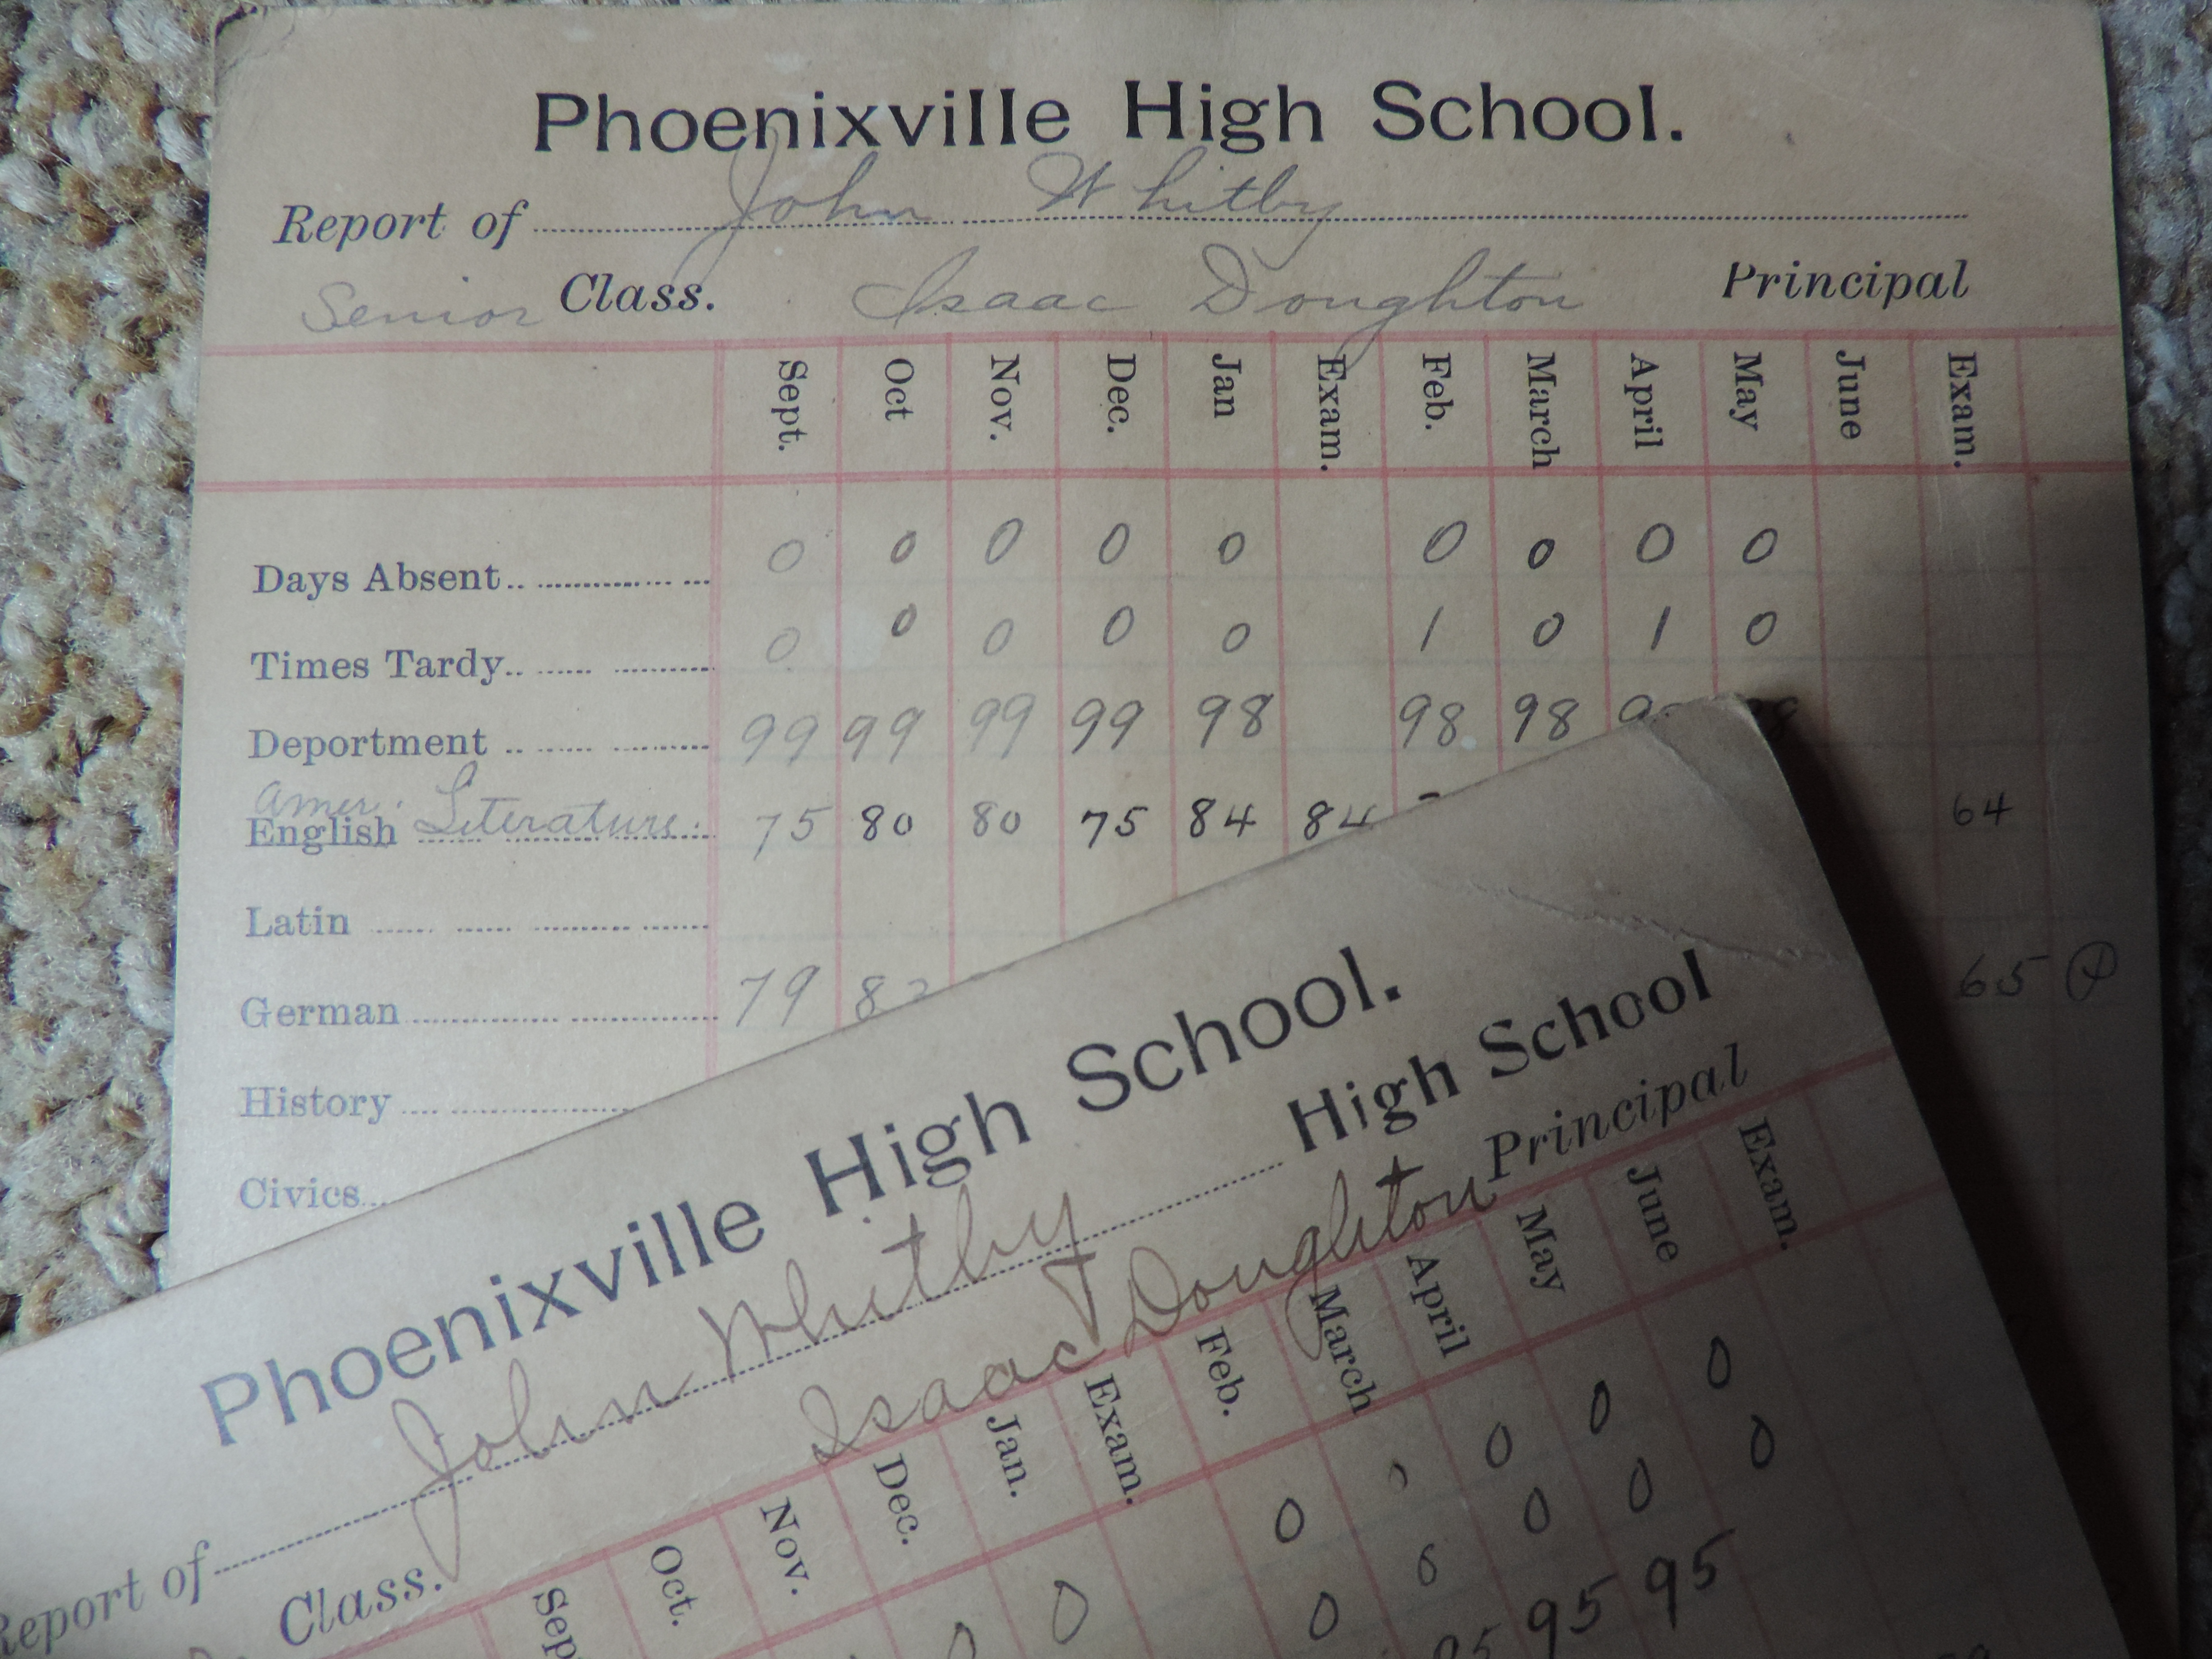 Phoenixville High School.
Report of John Whitby
Senior Class. Isaac Doughton Principal
Sept. Oct Nov. Dec. Jan Exam. Feb. March April May June Exam.
Days Absent 0 0 0 0 0 0 0 0 0
Times Tardy 0 0 0 0 0 1 0 1 0
Deportment 99 99 99 99 98 98 98
Amer. Literature
English 75 80 80 75 84 84 64
Latin
German 79 82 65
History
Civics
Phoenixville High School.
High School
Report of John Whitby
Class. Isaac Doughton Principal
Oct. Nov. Dec. Jan. Exam. Feb. March April May June Exam.
0 0 0 0 0
0 0 0 0 0
95 95 95